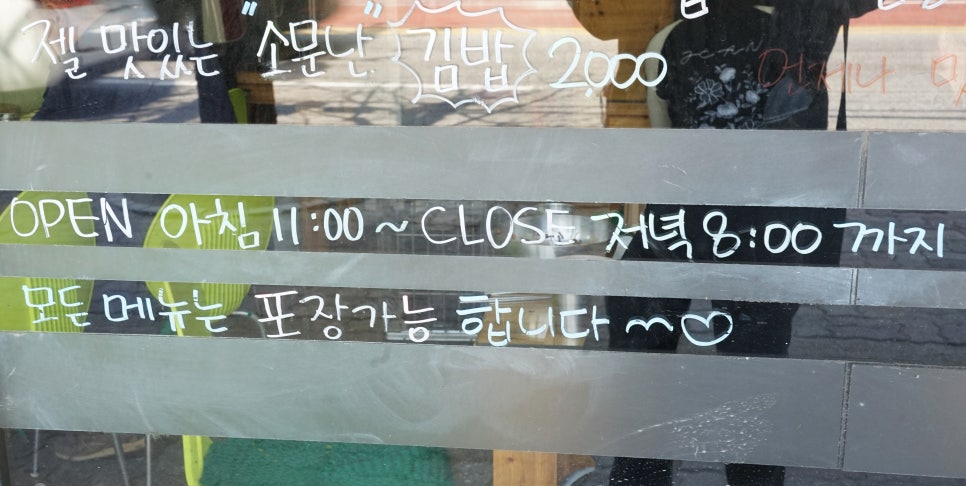 젤 맛있는 "소문난" 김밥 2,000
언제나
OPEN 아침 11:00 ~ CLOSE 저녁 8:00 까지
모든 메뉴는 포장가능 합니다 ~♡